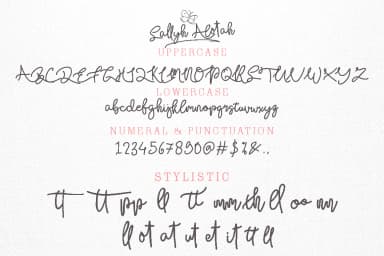 Sallyh Alotah
UPPERCASE
ABCDEFGHIJKLMNOPQRSTUVWXYZ
LOWERCASE
abcdefghijklmnopqrstuvwxyz
NUMERAL & PUNCTUATION
1234567890@#$%&..
STYLISTIC
tt tt pp ll tt mm th ll oo nn
ll ot at ut et it tt ll